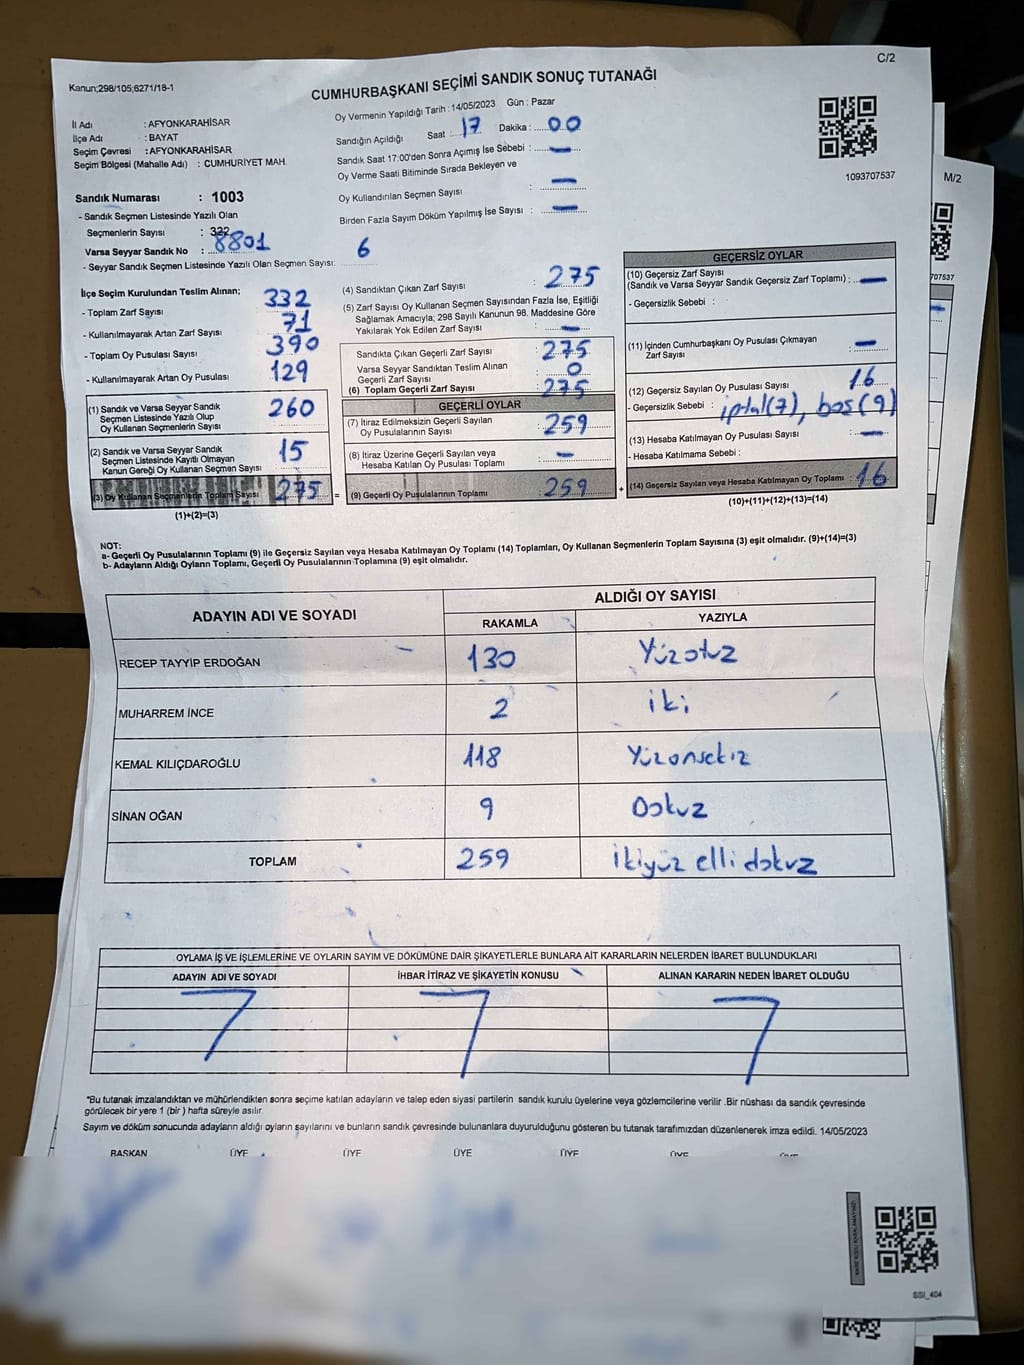 C/2
Kanun;298/105;6271/18-1
CUMHURBAŞKANI SEÇİMİ SANDIK SONUÇ TUTANAĞI
İl Adı : AFYONKARAHİSAR
İlçe Adı : BAYAT
Seçim Çevresi : AFYONKARAHİSAR
Seçim Bölgesi (Mahalle Adı) : CUMHURİYET MAH.
Oy Vermenin Yapıldığı Tarih : 14/05/2023 Gün : Pazar
Sandığın Açıldığı Saat : 17 Dakika : 00
Sandık Saat 17:00'den Sonra Açımış İse Sebebi : —
Oy Verme Saati Bitiminde Sırada Bekleyen ve
Oy Kullandırılan Seçmen Sayısı : —
Birden Fazla Sayım Döküm Yapılmış İse Sayısı : —
1093707537
M/2
707537
Sandık Numarası : 1003
- Sandık Seçmen Listesinde Yazılı Olan
Seçmenlerin Sayısı : 322
Varsa Seyyar Sandık No : 8801
- Seyyar Sandık Seçmen Listesinde Yazılı Olan Seçmen Sayısı: 6
İlçe Seçim Kurulundan Teslim Alınan;
- Toplam Zarf Sayısı 332
- Kullanılmayarak Artan Zarf Sayısı 71
- Toplam Oy Pusulası Sayısı 390
- Kullanılmayarak Artan Oy Pusulası 129
(1) Sandık ve Varsa Seyyar Sandık
Seçmen Listesinde Yazılı Olup
Oy Kullanan Seçmenlerin Sayısı 260
(2) Sandık ve Varsa Seyyar Sandık
Seçmen Listesinde Kayıtlı Olmayan
Kanun Gereği Oy Kullanan Seçmen Sayısı 15
(3) Oy Kullanan Seçmenlerin Toplam Sayısı 275 =
(1)+(2)=(3)
(4) Sandıktan Çıkan Zarf Sayısı : 275
(5) Zarf Sayısı Oy Kullanan Seçmen Sayısından Fazla İse, Eşitliği
Sağlamak Amacıyla; 298 Sayılı Kanunun 98. Maddesine Göre
Yakılarak Yok Edilen Zarf Sayısı : —
Sandıkta Çıkan Geçerli Zarf Sayısı 275
Varsa Seyyar Sandıktan Teslim Alınan
Geçerli Zarf Sayısı 0
(6) Toplam Geçerli Zarf Sayısı 275
GEÇERLİ OYLAR
(7) İtiraz Edilmeksizin Geçerli Sayılan
Oy Pusulalarının Sayısı 259
(8) İtiraz Üzerine Geçerli Sayılan veya
Hesaba Katılan Oy Pusulası Toplamı —
(9) Geçerli Oy Pusulalarının Toplamı 259 +
GEÇERSİZ OYLAR
(10) Geçersiz Zarf Sayısı
(Sandık ve Varsa Seyyar Sandık Geçersiz Zarf Toplamı) : —
- Geçersizlik Sebebi :
(11) İçinden Cumhurbaşkanı Oy Pusulası Çıkmayan
Zarf Sayısı : —
(12) Geçersiz Sayılan Oy Pusulası Sayısı 16
- Geçersizlik Sebebi : iptal(7), boş(9)
(13) Hesaba Katılmayan Oy Pusulası Sayısı : —
- Hesaba Katılmama Sebebi :
(14) Geçersiz Sayılan veya Hesaba Katılmayan Oy Toplamı : 16
(10)+(11)+(12)+(13)=(14)
NOT:
a- Geçerli Oy Pusulalarının Toplamı (9) ile Geçersiz Sayılan veya Hesaba Katılmayan Oy Toplamı (14) Toplamları, Oy Kullanan Seçmenlerin Toplam Sayısına (3) eşit olmalıdır. (9)+(14)=(3)
b- Adayların Aldığı Oyların Toplamı, Geçerli Oy Pusulalarının Toplamına (9) eşit olmalıdır.
ADAYIN ADI VE SOYADI ALDIĞI OY SAYISI
RAKAMLA YAZIYLA
RECEP TAYYİP ERDOĞAN 130 Yüzotuz
MUHARREM İNCE 2 iki
KEMAL KILIÇDAROĞLU 118 Yüzonsekiz
SİNAN OĞAN 9 Dokuz
TOPLAM 259 ikiyüz elli dokuz
OYLAMA İŞ VE İŞLEMLERİNE VE OYLARIN SAYIM VE DÖKÜMÜNE DAİR ŞİKAYETLERLE BUNLARA AİT KARARLARIN NELERDEN İBARET BULUNDUKLARI
ADAYIN ADI VE SOYADI İHBAR İTİRAZ VE ŞİKAYETİN KONUSU ALINAN KARARIN NEDEN İBARET OLDUĞU
*Bu tutanak imzalandıktan ve mühürlendikten sonra seçime katılan adayların ve talep eden siyasi partilerin sandık kurulu üyelerine veya gözlemcilerine verilir .Bir nüshası da sandık çevresinde
görülecek bir yere 1 (bir ) hafta süreyle asılır.
Sayım ve döküm sonucunda adayların aldığı oyların sayılarını ve bunların sandık çevresinde bulunanlara duyurulduğunu gösteren bu tutanak tarafımızdan düzenlenerek imza edildi. 14/05/2023
BAŞKAN ÜYE ÜYE ÜYE ÜYE ÜYE ÜYE
SSI_404